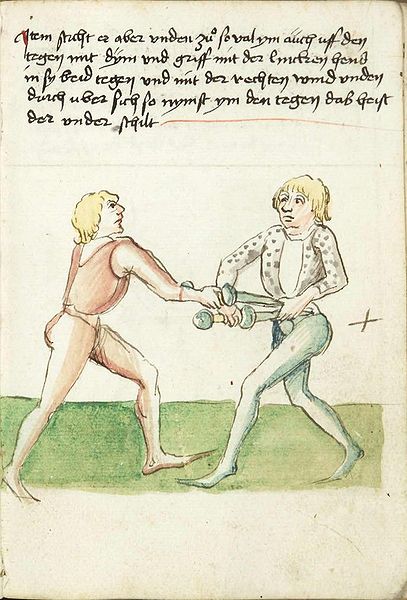 Item sticht er aber vnden zuͦ so val ym auch vff den
tegen mit dym vnd griff mit der lincken hend
in sy beid tegen vnd mit der rechten wind vnden
durch vber sich so nymst ym den tegen daß heist
der vnder schilt